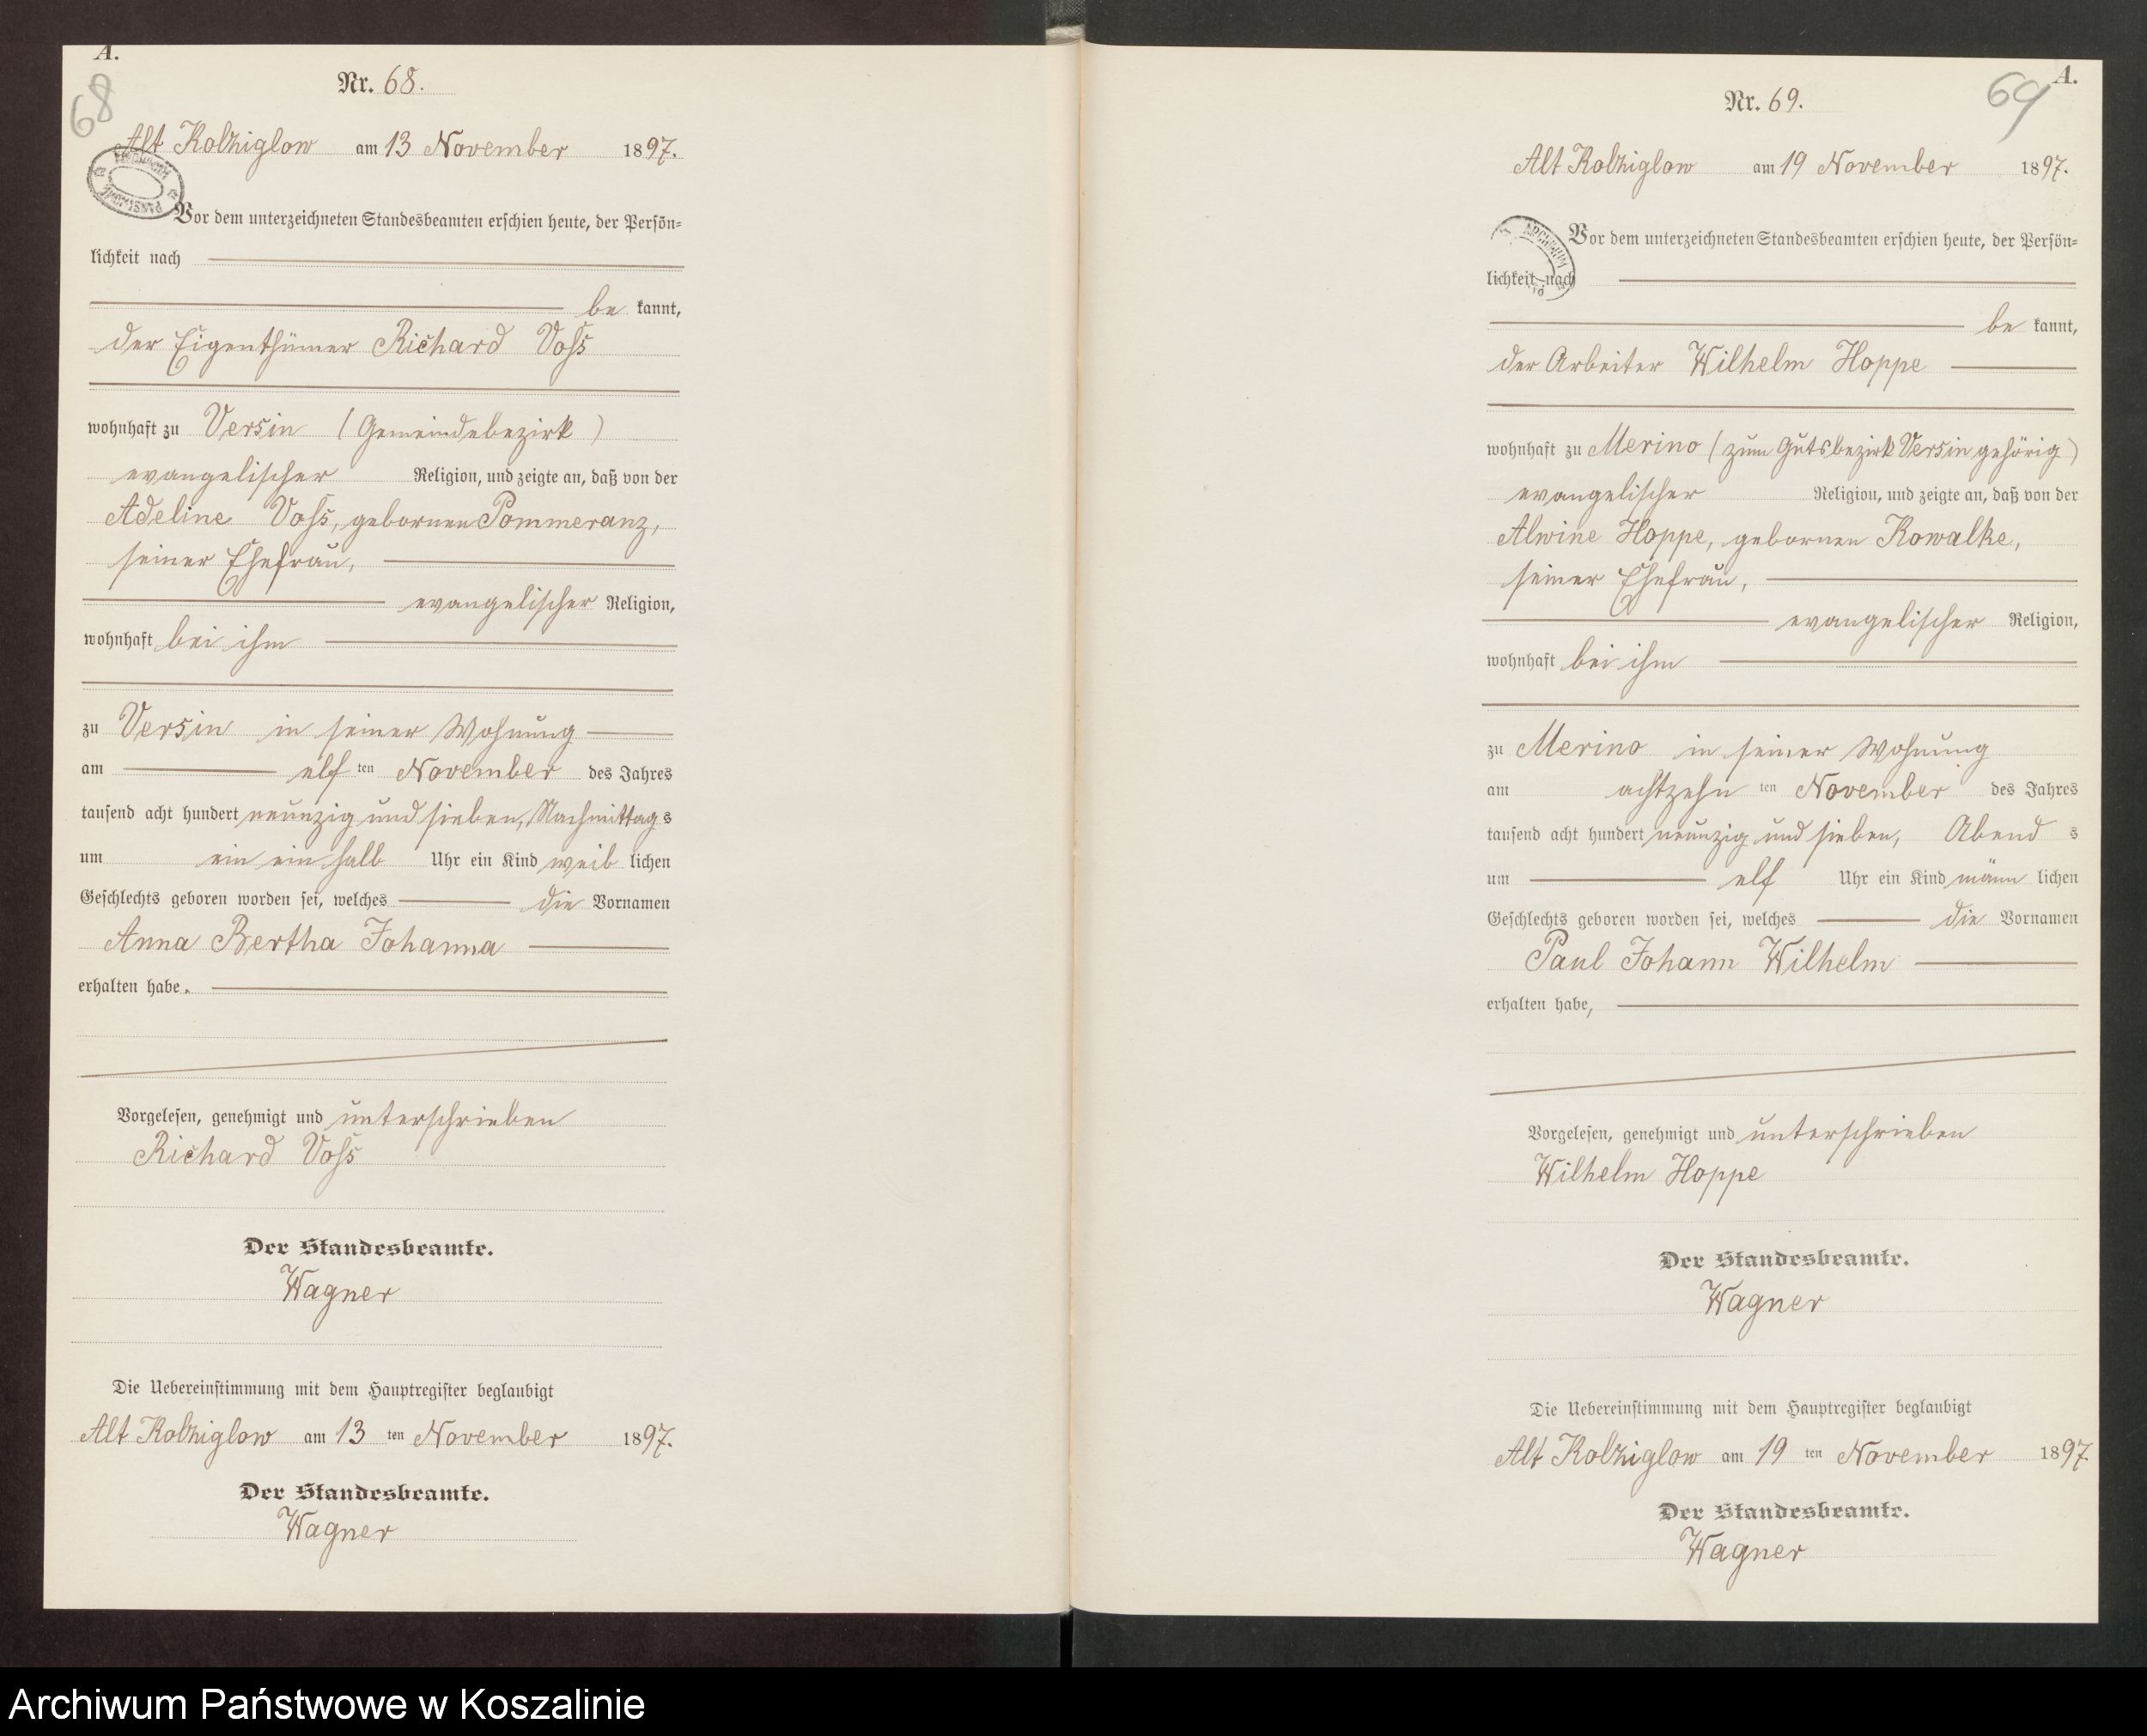 A.
68
Nr. 68.
Alt Kolziglow am 13 November 1897.
Vor dem unterzeichneten Standesbeamten erschien heute, der Persön=
lichkeit nach
be kannt,
der Eigenthümer Richard Voß
wohnhaft zu Versin (Gemeindebezirk)
evangelischer Religion, und zeigte an, daß von der
Adeline Voß, gebornen Pommeranz,
seiner Ehefrau,
evangelischer Religion,
wohnhaft bei ihm
zu Versin in seiner Wohnung
am elf ten November des Jahres
tausend acht hundert neunzig und sieben, Nachmittag s
um ein ein halb Uhr ein Kind weib lichen
Geschlechts geboren worden sei, welches die Vornamen
Anna Bertha Johanna
erhalten habe.
Vorgelesen, genehmigt und unterschrieben
Richard Voß
Der Standesbeamte.
Wagner
Die Uebereinstimmung mit dem Hauptregister beglaubigt
Alt Kolziglow am 13 ten November 1897.
Der Standesbeamte.
Wagner
A.
69
Nr. 69.
Alt Kolziglow am 19 November 1897.
ARCHIWUM
Vor dem unterzeichneten Standesbeamten erschien heute, der Persön=
lichkeit nach
be kannt,
der Arbeiter Wilhelm Hoppe
wohnhaft zu Merino (zum Gutsbezirk Versin gehörig)
evangelischer Religion, und zeigte an, daß von der
Alwine Hoppe, gebornen Kowalke,
seiner Ehefrau,
evangelischer Religion,
wohnhaft bei ihm
zu Merino in seiner Wohnung
am achtzehn ten November des Jahres
tausend acht hundert neunzig und sieben, Abend s
um elf Uhr ein Kind männ lichen
Geschlechts geboren worden sei, welches die Vornamen
Paul Johann Wilhelm
erhalten habe,
Vorgelesen, genehmigt und unterschrieben
Wilhelm Hoppe
Der Standesbeamte.
Wagner
Die Uebereinstimmung mit dem Hauptregister beglaubigt
Alt Kolziglow am 19 ten November 1897.
Der Standesbeamte.
Wagner
Archiwum Państwowe w Koszalinie